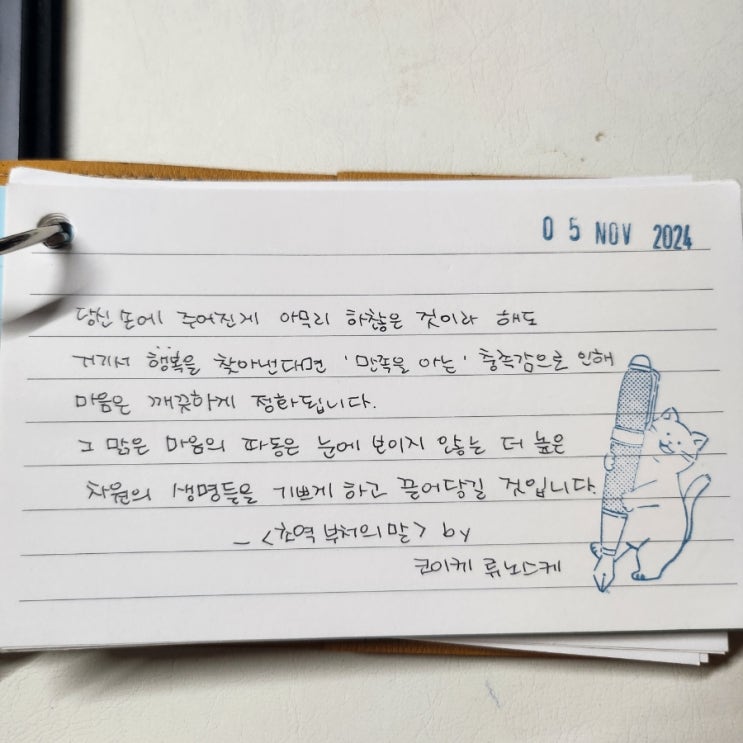 05 NOV 2024
당신 손에 주어진게 아무리 하찮은 것이라 해도
거기서 행복을 찾아낸다면 '만족을 아는' 충족감으로 인해
마음은 깨끗하게 정화됩니다.
그 맑은 마음의 파동은 눈에 보이지 않는 더 높은
차원의 생명들을 기쁘게 하고 끌어당길 것입니다.
- <초역 부처의 말> by
코이케 류노스케